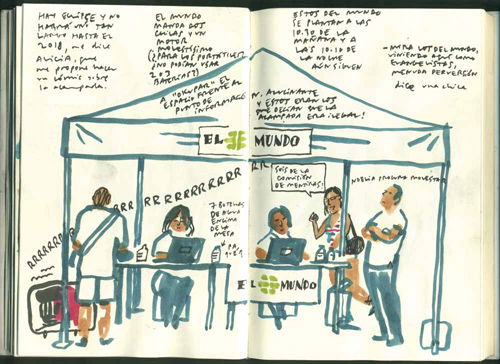 HAY ECLIPSE Y NO
HABRÁ UNO TAN
LARGO HASTA EL
2018, me dice
ALICIA, que
me propone hacer
un cómic sobre
la acampada.
EL MUNDO
MANDA DOS
CHICAS Y UN
MOTOR
MOLESTÍSIMO
(¿PARA LOS PORTÁTILES?
¿NO PODÍAN USAR
2 o 3
BATERÍAS?)
A "OKUPAR" EL
ESPACIO FRENTE AL
PUNTO DE
INFORMACIÓN. ALUCINANTE
Y ESTOS ERAN LOS
QUE DECÍAN QUE LA
ACAMPADA ERA ILEGAL!
ESTOS DEL MUNDO
SE PLANTAN A LAS
10.30 DE LA
MAÑANA Y A
LAS 10.10 DE
LA NOCHE
AÚN SIGUEN
- MIRA LOS DEL MUNDO,
VINIENDO AQUÍ COMO
EVANGELISTAS,
MENUDA PERVERSIÓN
dice una chica
EL MUNDO
RRRRRRRRRRRRRR
RR
SOIS DE LA
COMISIÓN
DE MENTIRAS!
NOELIA PROCURA MOLESTAR
7 BOTELLAS
DE AGUA
ENCIMA
DE LA
MESA
EL MUNDO